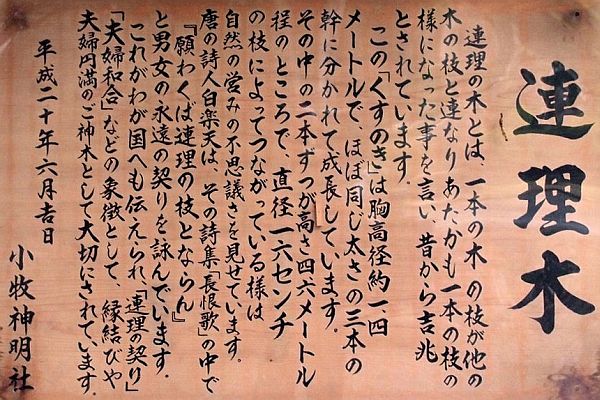 連理木
連理の木とは、一本の木の枝が他の
木の枝と連なりあたかも一本の枝の
様になった事を言い、昔から吉兆
とされています。
この「くすのき」は胸高径約一、四
メートルで、ほぼ同じ太さの三本の
幹に分かれて成長しています。
その中の二本ずつが高さ四、六メートル
程のところで、直径一六センチ
の枝によってつながっている様は
自然の営みの不思議さを見せています。
唐の詩人白楽天は、その詩集「長恨歌」の中で
『願わくば連理の枝とならん』
と男女の永遠の契りを詠んでいます。
これがわが国へも伝えられ、「連理の契り」
「夫婦和合」などの象徴として、縁結びや
夫婦円満のご神木として大切にされています。
平成二十年六月吉日
小牧神明社